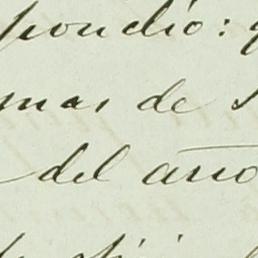 pondió:
mas de
del año